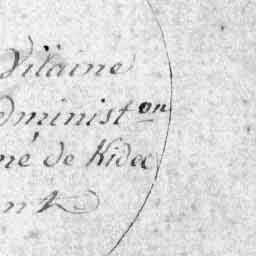 Vilaine
dminist.on
né de Kidec
nt